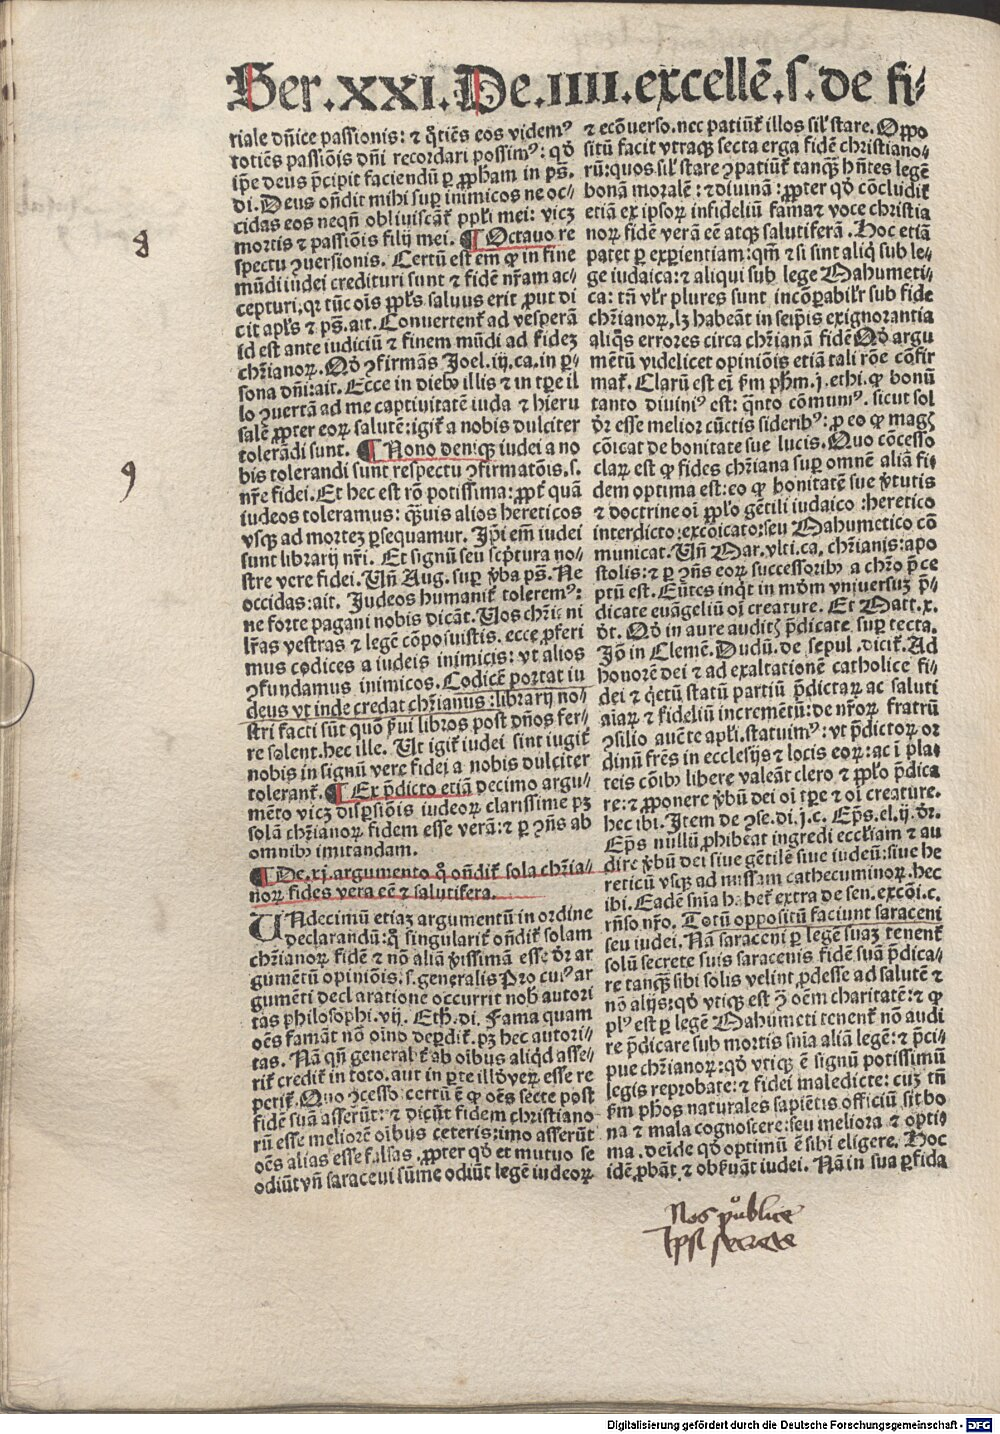 Ser.XXI.De.IIII.excellē.s.de fi-
riale dñice passionis: ⁊ q̄tiēs eos videmꝰ
totiēs passiōis dñi recordari possimꝰ: qđ
ip̄e deus p̄cipit faciendū ꝑ ꝓpham in pš.
di. Deus on̄dit mihi suꝑ inimicos ne oc-
cidas eos neqn̄ obliuiscāt̄ ppl̄i mei: vicꝫ
mortis ⁊ passiōis filij mei. ¶ Octauo re
8
spectu ꝯuersionis. Certū est em̄ ꝙ in fine
mūdi iudei credituri sunt ⁊ fidē nr̄am ac-
cepturi: qꝛ tūc oīs ppl̄s saluus erit ꝓut di
cit apl̄s ⁊ pš. ait. Conuertent̄ ad vesperā
id est ante iudiciū ⁊ finem mūdi ad fideꝫ
chr̄ianoꝝ. Qđ ꝯfirmās Joel. iij. ca. in ꝑ-
sona dñi: ait. Ecce in dieb᷒ illis ⁊ in tꝑe il
lo ꝯuertā ad me captiuitatē iuda ⁊ hieru
salē ꝓpter eoꝝ salutē: igit̄ a nobis dulciter
tolerādi sunt. ¶ Nono deniqꝫ iudei a no
9
bis tolerandi sunt respectu ꝯfirmatōis. s.
nr̄e fidei. Et hec est rō potissima: ꝓpt̄ quā
iudeos toleramus: qꝫuis alios hereticos
vsqꝫ ad morteꝫ ꝑsequamur. Jp̄i em̄ iudei
sunt librarij nr̄i. Et signū seu scp̄tura no-
stre vere fidei. Vn̄ Aug. suꝑ v̄ba pš. Ne
occidas: ait. Judeos humanit̄ toleremꝰ:
ne forte pagani nobis dicāt. Vos chr̄ic ni
lr̄as vestras ⁊ legē cōposuistis. ecce ꝓferi
mus codices a iudeis inimicis: vt alios
ꝯfundamus inimicos. Codicē portat iu
deus vt inde credat chr̄ianus: librarij no-
stri facti sūt quō ẜui libros post dños fer-
re solent. hec ille. Vt igit̄ iudei sint iugit̄
nobis in signū vere fidei a nobis dulciter
tolerant̄. ¶ Ex p̄dicto etiā decimo argu-
mēto vicꝫ disp̄siōis iudeoꝝ clarissime pꝫ
solā chr̄ianoꝝ fidem esse verā: ⁊ ꝑ ꝯn̄s ab
omnib᷒ imitandam.
¶ De. xj. argumento q̊ on̄dit̄ sola chr̄ia-
noꝝ fides vera eē ⁊ salutifera.
VNdecimū etiaꝫ argumentū in ordine
declarandū: q̊ singularit̄ on̄dit̄ solam
chr̄ianoꝝ fidē ⁊ nō aliā v̄issimā esse dr̄ ar
gumētū opiniōis. s. generalis Pro cuiꝰ ar
gumēti declaratione occurrit nob᷒ autori
tas philosophi. vij. Eth. di. Fama quam
oēs famāt nō oīno deꝑdit̄. pꝫ hec autori-
tas. Nā qn̄ general̄r ab oībus aliqd asse-
rit̄ credit̄ in toto. aut in ꝑte illoꝝ veꝝ esse re
perit̄. Quo ꝯcesso: certū ē ꝙ oēs secte post
fidē suā asserūt: ⁊ dicūt fidem christiano-
rū esse meliorē oībus ceteris: imo asserūt
oēs alias esse falsas. ꝓpter qđ et mutuo se
odiūt vn̄ saraceni sūme odiūt legē iudeoꝝ
⁊ ecōuerso. nec patiūt̄ illos sil̄ stare. Oppo
sitū facit vtraqꝫ secta erga fidē christiano-
rū: quos sil̄ stare ꝯpatiūt̄ tanqꝫ hn̄tes legē
bonā moralē: ⁊ diuinā: ꝓpter qđ cōcludit̄
etiā ex ipsoꝝ infideliū fama ⁊ voce christia
noꝝ fidē verā eē atqꝫ salutiferā. Hoc etiā
patet ꝑ exꝑientiam: qm̄ ⁊ si sint aliq̄ sub le-
ge iudaica: ⁊ aliqui sub lege Mahumeti-
ca: tn̄ vl̄r plures sunt incōꝑabilr̄ sub fide
chr̄ianoꝝ, lꝫ habeāt in seip̄is ex ignorantia
aliq̄s errores circa chr̄ianā fidē Qđ argu
mētū videlicet opiniōis etiā tali rōe cōfir
mat̄. Clarū est eī ẜm pħm. j. ethi. ꝙ bonū
tanto diuiniꝰ est: q̄nto cōmuniꝰ. sicut sol
dr̄ esse melior cūctis siderib᷒: ꝓ eo ꝙ magꝭ
cōicat de bonitate sue lucis. Quo cōcesso
claꝝ est ꝙ fides chr̄iana suꝑ omnē aliā fi
dem optima est: eo ꝙ bonitatē sue v̄tutis
⁊ doctrine oī ppl̄o gētili iudaico: heretico
interdicto: excōicato: seu Mahumetico cō
municat. Vn̄ Mar. vlti. ca. chr̄ianis: apo
stolis: ⁊ ꝑ ꝯn̄s eoꝝ successorib᷒ a chr̄o p̄ce
ptū est. Eūtes inq̄t in mūdm vniuersuꝫ p̄-
dicate euāgeliū oī creature. Et Matt. x.
dr̄. Qđ in aure auditꝭ p̄dicate suꝑ tecta.
Jđo in Clemē. Dudū. de sepul. dicit̄. Ad
honorē dei ⁊ ad exaltationē catholice fi-
dei ⁊ q̄etū statū partiū p̄dictaꝝ ac saluti
aīaꝝ ⁊ fideliū incremētū: de nr̄oꝝ fratrū
ꝯsilio aucte apl̄i. statuimꝰ: vt p̄dictoꝝ or
dinū fr̄es in ecclesijs ⁊ locis eoꝝ: ac ī pla-
teis cōib᷒ libere valeāt clero ⁊ ppl̄o p̄dica
re: ⁊ ꝓponere v̄bū dei oī tꝑe ⁊ oī creature.
hec ibi. Item de ꝯse. di. j. c. Ep̄s. el. ij. dr̄.
Ep̄s nullū ꝓhibeat ingredi eccl̄iam ⁊ au
dire v̄bū dei siue gētilē siue iudeū: siue he
reticū vsqꝫ ad missam cathecuminoꝝ. hec
ibi. Eadē sn̄ia habet̄ extra de sen. excōi. c.
rn̄so nr̄o. Totū oppositū faciunt saraceni
seu iudei. Nā saraceni ꝑ legē suaꝫ tenent̄
solū secrete suis saracenis fidē suā p̄dica-
re tanqꝫ sibi solis velint ꝓdesse ad salutē ⁊
nō alijs: qđ vtiqꝫ est ꝯ̄ oēm charitatē: ⁊ ꝙ
plꝰ est ꝑ legē Mahumeti tenent̄ nō audi
re p̄dicare sub mortis sn̄ia aliā legē: ⁊ p̄ci-
pue chr̄ianoꝝ: qđ vtiqꝫ ē signū potissimū
legis reprobate: ⁊ fidei maledicte: cuꝫ tn̄
ẜm phōs naturales sapiētis officiū sit bo
na ⁊ mala cognoscere: seu meliora ⁊ opti-
ma. deīde qđ optimū ē sibi eligere. Hoc
idē ꝓbāt ⁊ obẜuāt iudei. Nā in sua ꝑfida
Nos publice
Jpsi secrete
Digitalisierung gefördert durch die Deutsche Forschungsgemeinschaft - DFG